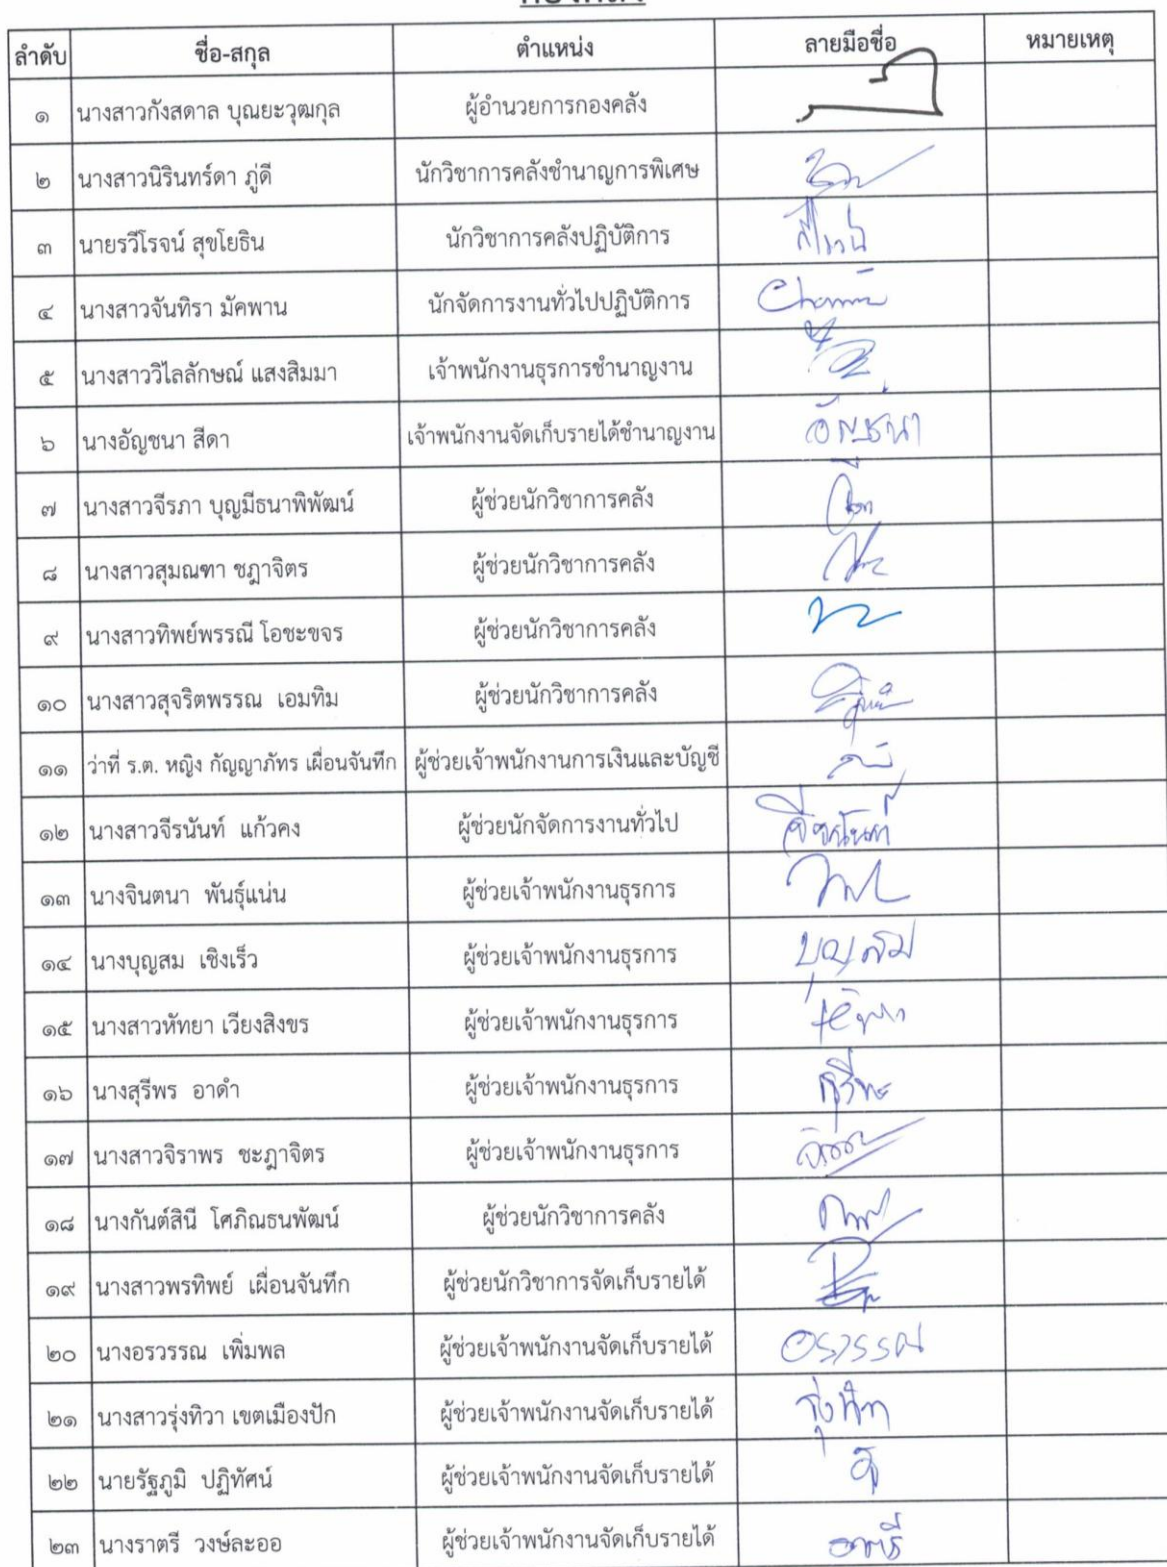 ลำดับ ชื่อ-สกุล ตำแหน่ง ลายมือชื่อ หมายเหตุ
๑ นางสาวกังสดาล บุณยะวุฒกุล ผู้อำนวยการกองคลัง
๒ นางสาวนิรินทร์ดา ภู่ดี นักวิชาการคลังชำนาญการพิเศษ
๓ นายรวีโรจน์ สุขโยธิน นักวิชาการคลังปฏิบัติการ
๔ นางสาวจันทิรา มัคพาน นักจัดการงานทั่วไปปฏิบัติการ
๕ นางสาววิไลลักษณ์ แสงสิมมา เจ้าพนักงานธุรการชำนาญงาน
๖ นางอัญชนา สีดา เจ้าพนักงานจัดเก็บรายได้ชำนาญงาน อัญชนา
๗ นางสาวจีรภา บุญมีธนาพิพัฒน์ ผู้ช่วยนักวิชาการคลัง
๘ นางสาวสุมณฑา ชฎาจิตร ผู้ช่วยนักวิชาการคลัง
๙ นางสาวทิพย์พรรณี โอชะขจร ผู้ช่วยนักวิชาการคลัง
๑๐ นางสาวสุจริตพรรณ เอมทิม ผู้ช่วยนักวิชาการคลัง
๑๑ ว่าที่ ร.ต. หญิง กัญญาภัทร เผื่อนจันทึก ผู้ช่วยเจ้าพนักงานการเงินและบัญชี
๑๒ นางสาวจีรนันท์ แก้วคง ผู้ช่วยนักจัดการงานทั่วไป จีรนันท์
๑๓ นางจินตนา พันธุ์แน่น ผู้ช่วยเจ้าพนักงานธุรการ
๑๔ นางบุญสม เชิงเร็ว ผู้ช่วยเจ้าพนักงานธุรการ บุญสม
๑๕ นางสาวหัทยา เวียงสิงขร ผู้ช่วยเจ้าพนักงานธุรการ
๑๖ นางสุรีพร อาดำ ผู้ช่วยเจ้าพนักงานธุรการ สุรีพร
๑๗ นางสาวจิราพร ชะฎาจิตร ผู้ช่วยเจ้าพนักงานธุรการ
๑๘ นางกันต์สินี โศภิณธนพัฒน์ ผู้ช่วยนักวิชาการคลัง
๑๙ นางสาวพรทิพย์ เผื่อนจันทึก ผู้ช่วยนักวิชาการจัดเก็บรายได้
๒๐ นางอรวรรณ เพิ่มพล ผู้ช่วยเจ้าพนักงานจัดเก็บรายได้ อรวรรณ
๒๑ นางสาวรุ่งทิวา เขตเมืองปัก ผู้ช่วยเจ้าพนักงานจัดเก็บรายได้ รุ่งทิวา
๒๒ นายรัฐภูมิ ปฏิทัศน์ ผู้ช่วยเจ้าพนักงานจัดเก็บรายได้
๒๓ นางราตรี วงษ์ละออ ผู้ช่วยเจ้าพนักงานจัดเก็บรายได้ ราตรี